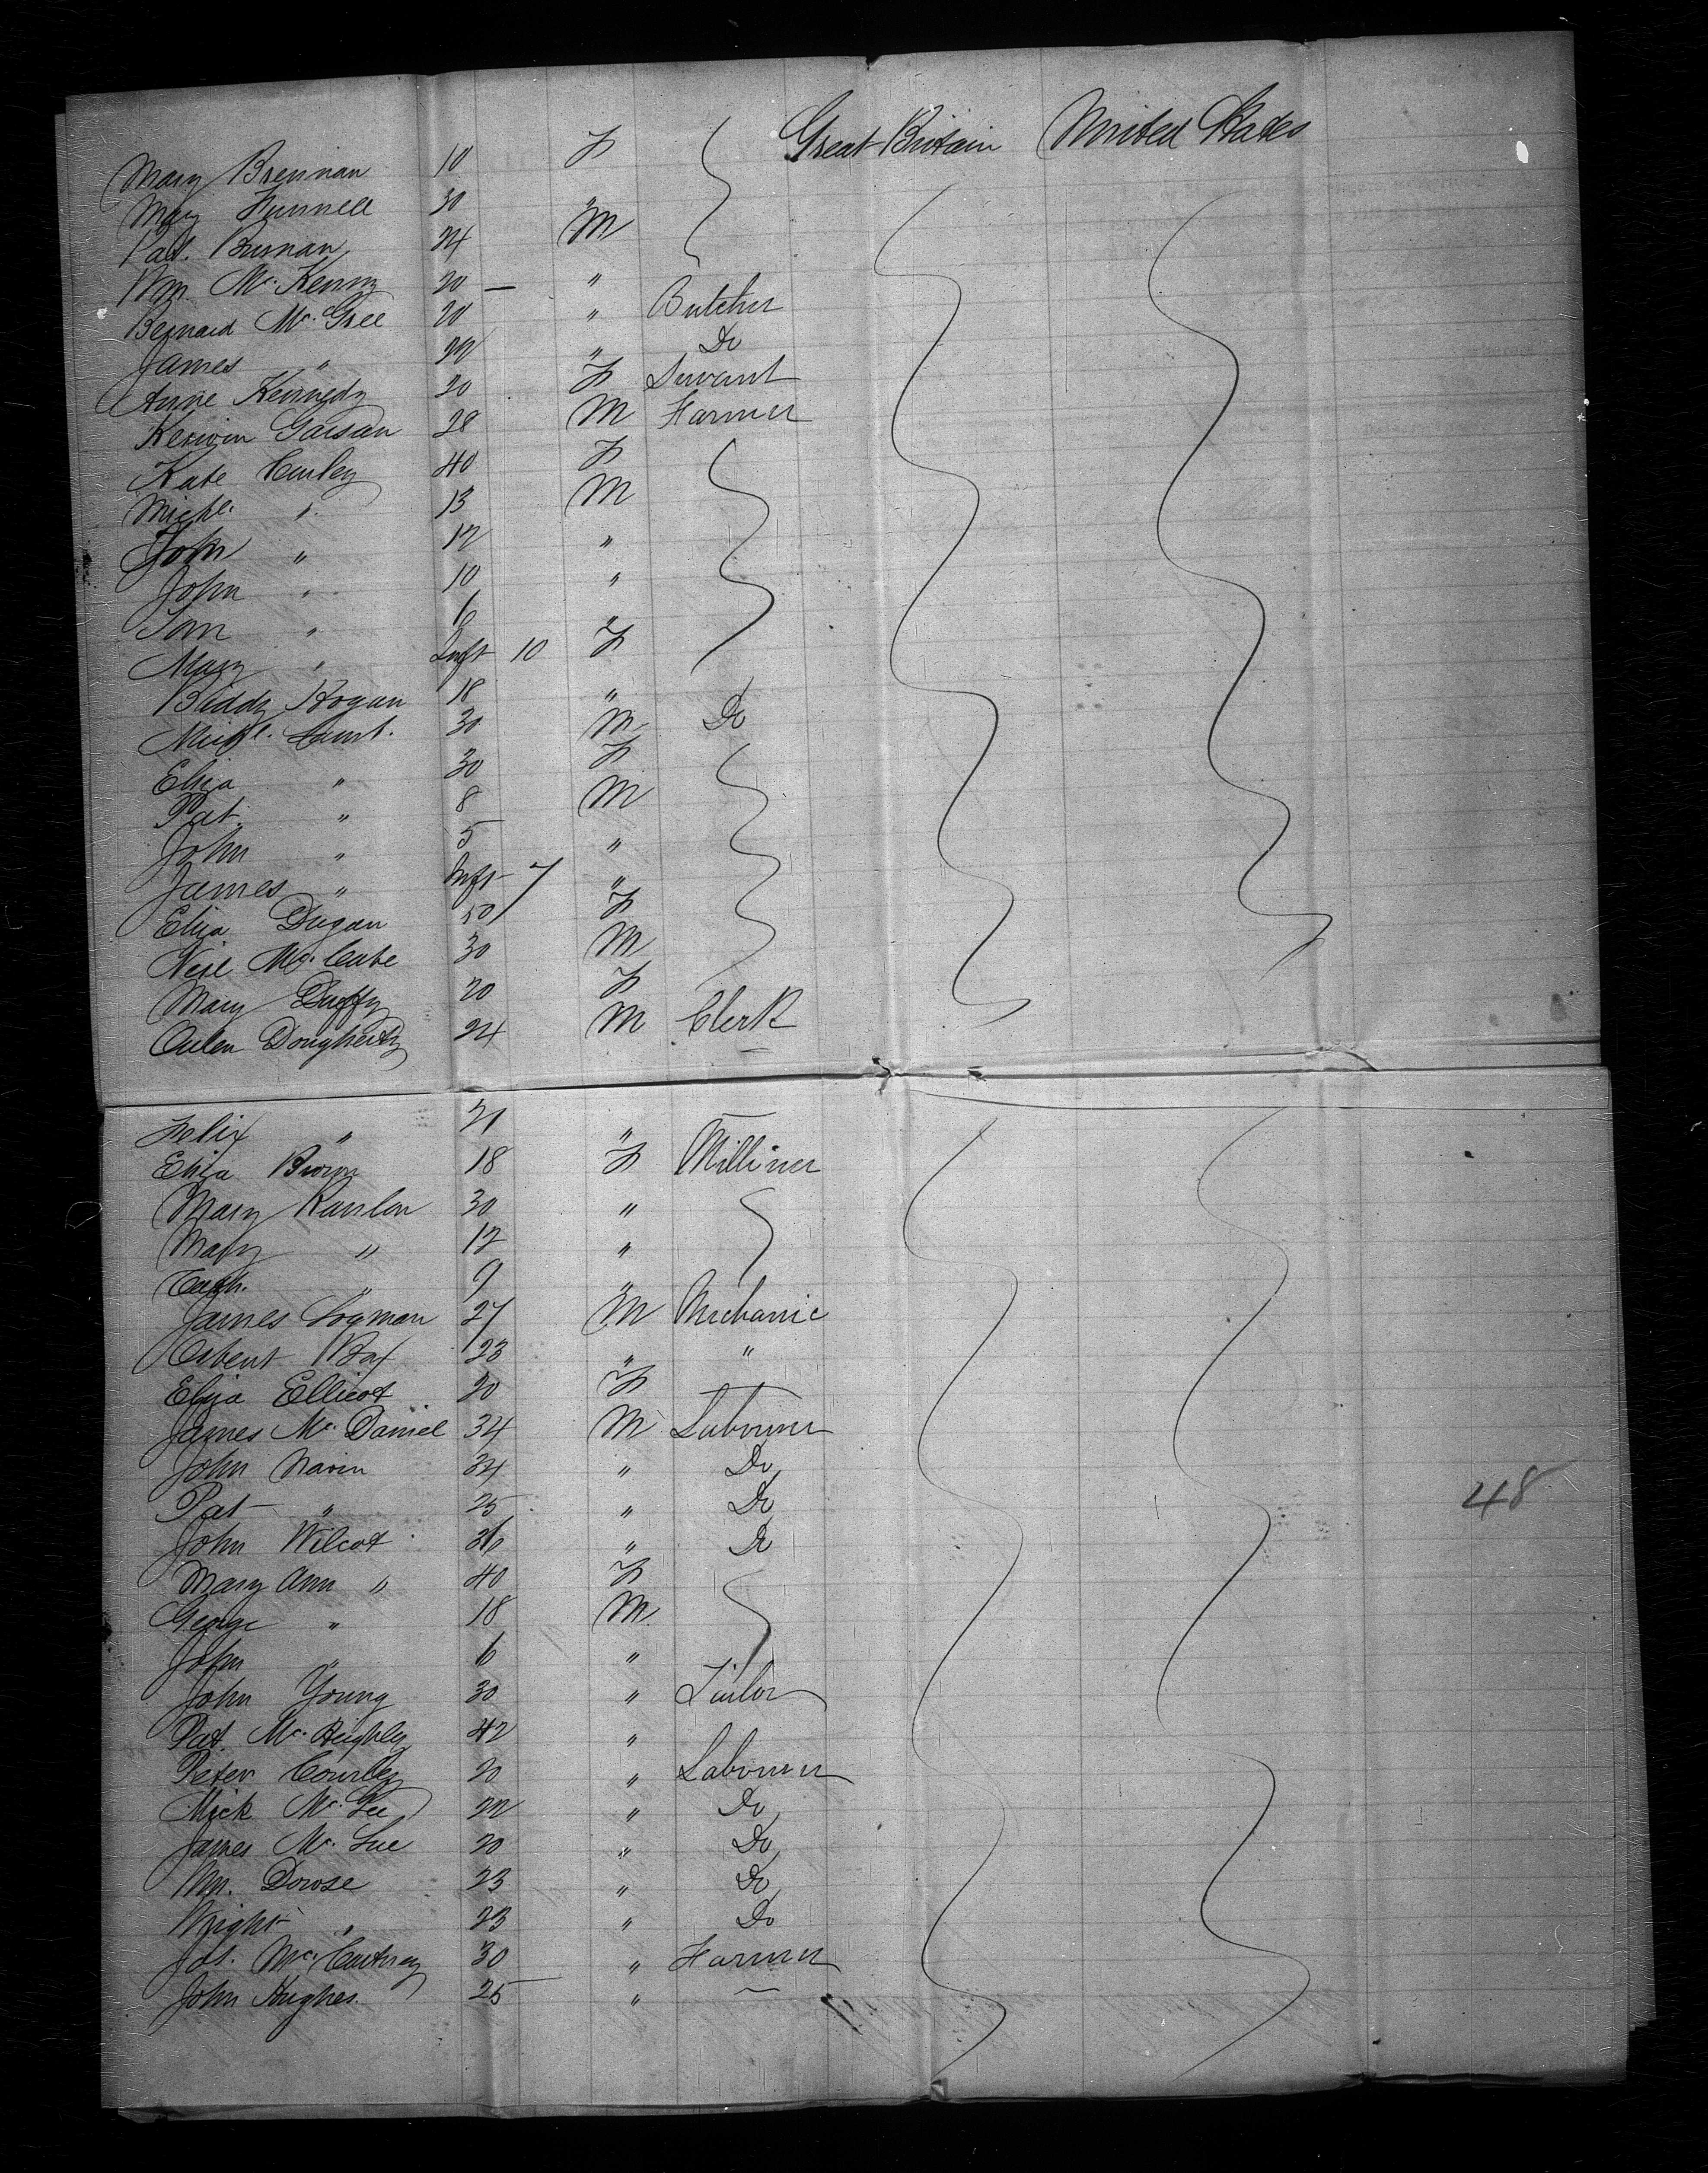 Great Britain United States
Mary Brennan 10 F
Mary Funnell 30 "
Pat. Brenan 24 M
Wm. Mc. Kenny 20 — "
Bernard Mc. Gree 20 " Butcher
James " 22 " Do
Anne Kennedy 20 F Servant
28 M Farmer
Kate Curley 40 F
Michl. " 13 M
John " 12 "
John " 10 "
Tom " 6 "
Mary " Inft 10 F
Biddy Hogan 18 "
Michl. 30 M Do
Eliza " 30 F
Pat " 8 M
John " 5 "
James " Inft 7 "
Eliza Dugan 50 F
Neil Mc. Cabe 30 M
Mary Duffy 20 F
Dougherty 24 M Clerk
Felix " 21 "
Eliza Brown 18 F Milliner
Mary 30 "
Mary " 12 "
Cath. " 9 "
James Logman 27 M Mechanic
23 " "
Eliza Ellicot 20 F
James Mc. Daniel 34 M Labourer
John Navin 34 " Do
Pat " 25 " Do
John Wilcot 36 " Do
Mary Ann " 40 F
George " 18 M
John " 6 "
John Young 30 " Tailor
Pat. Mc. 42 "
Peter Courley 20 " Labourer
Mick Mc. Gee 22 " Do
James Mc. 20 " Do
Wm. Dowse 23 " Do
Wright " 23 " Do
Jas. Mc. Cartney 30 " Farmer
John Hughes. 25 " —
48